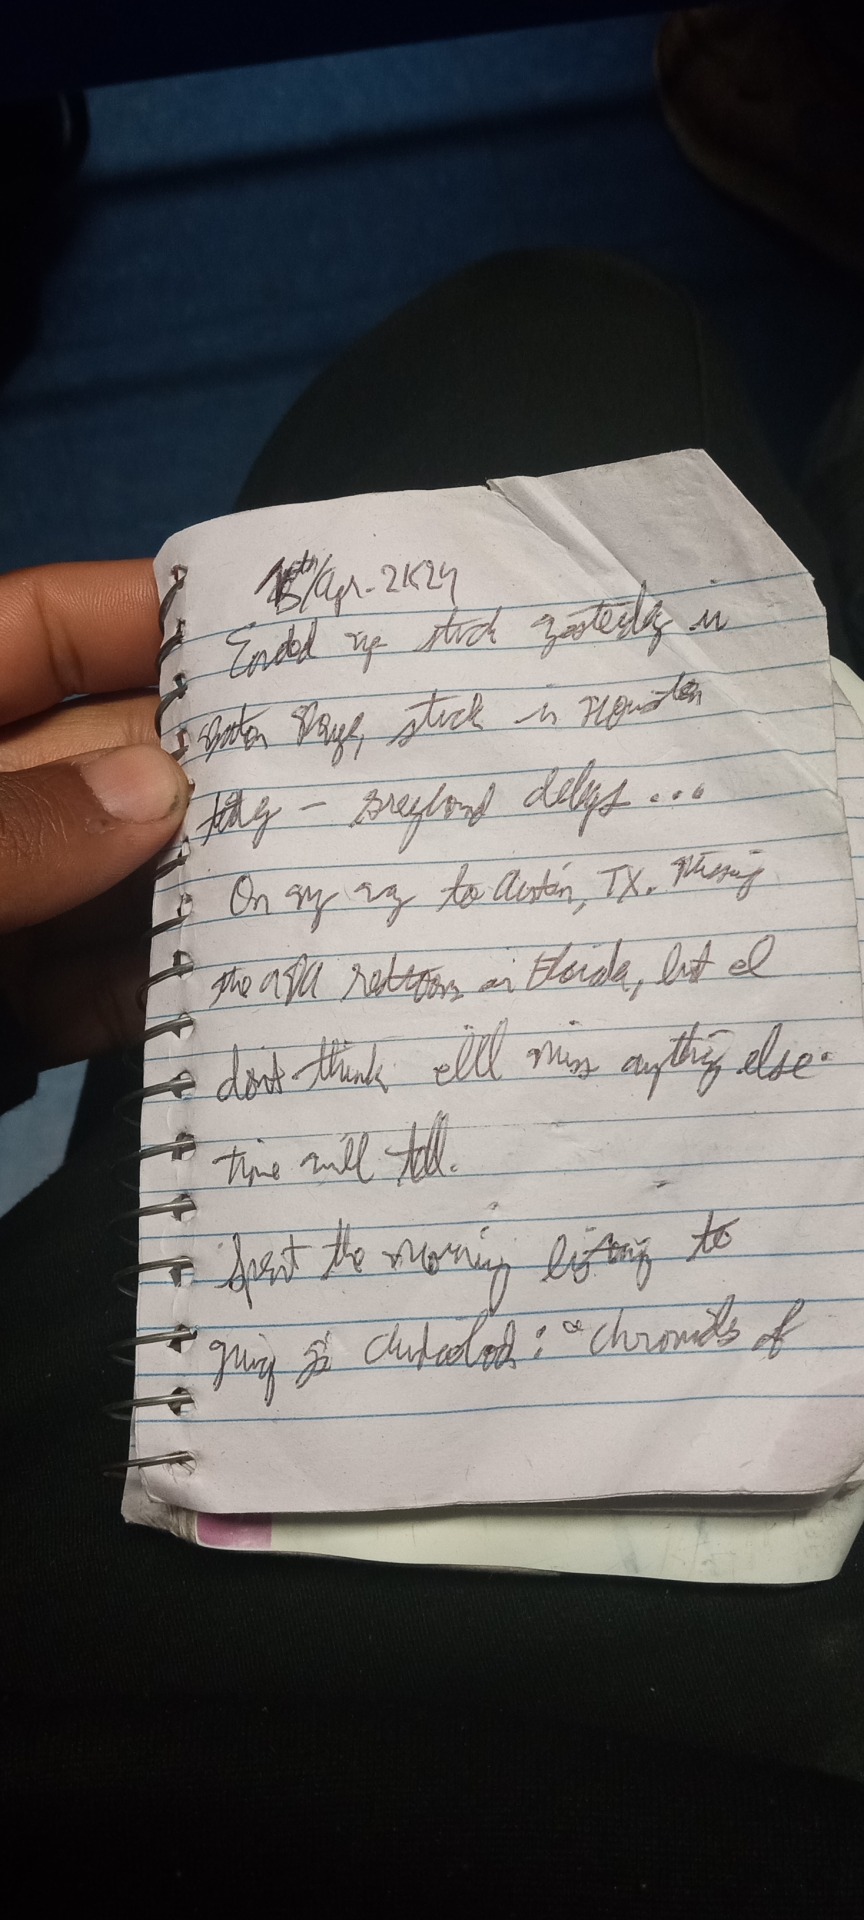 15th/Apr-2K24
Ended up stuck yesterday in
Baton Rouge, stuck in Houston
today - Greyhound delays...
On my way to Austin, TX. Missing
the in Florida, but I
don't think I'll miss anything else.
time will tell.
Spent the morning listening to
of